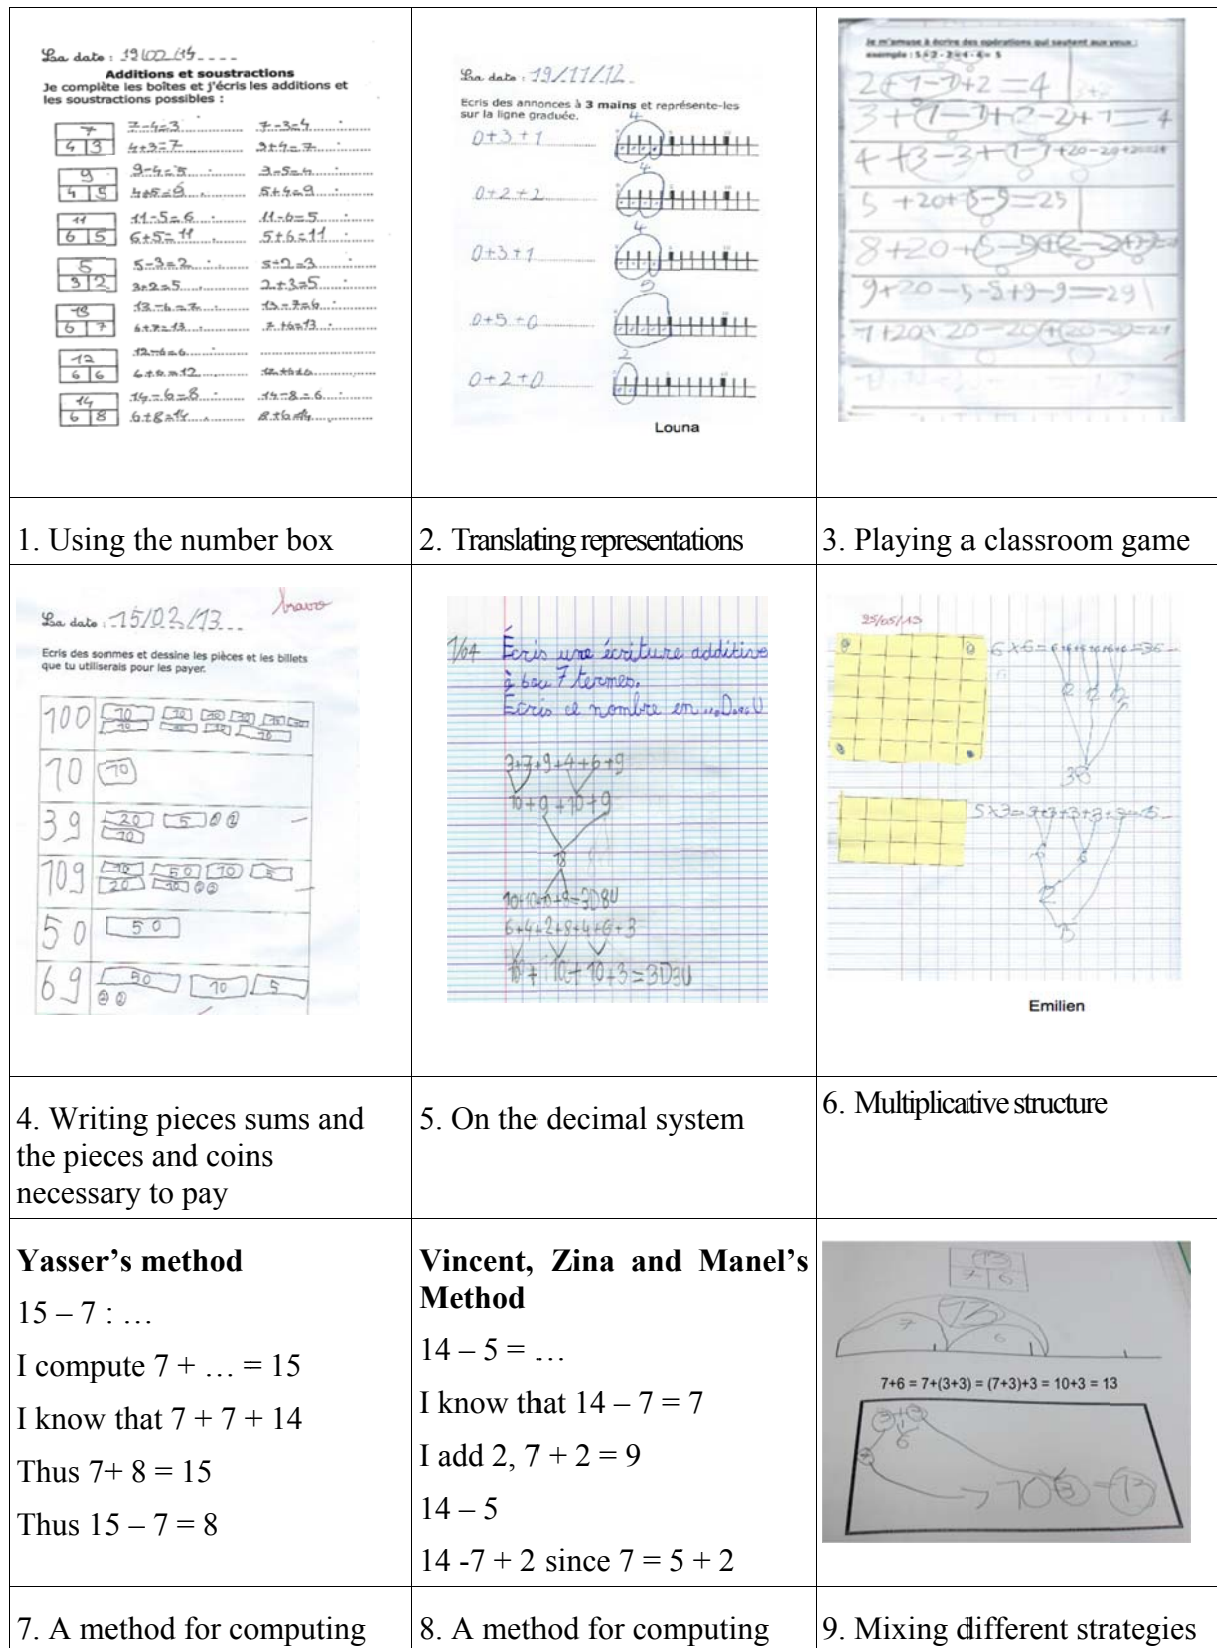 La date : 19/02/14
Additions et soustractions
Je complète les boîtes et j'écris les additions et
les soustractions possibles :
7
4 3
7-4=3 7-3=4
4+3=7 3+4=7
9
4 5
9-4=5 9-5=4
4+5=9 5+4=9
11
6 5
11-5=6 11-6=5
6+5=11 5+6=11
5
3 2
5-3=2 5-2=3
3+2=5 2+3=5
13
6 7
13-6=7 13-7=6
6+7=13 7+6=13
12
6 6
12-6=6
6+6=12
14
6 8
14-6=8 14-8=6
6+8=14 8+6=14
La date : 19/11/12
Ecris des annonces à 3 mains et représente-les
sur la ligne graduée.
0+3+1
4
0+2+2
4
0+3+1
4
0+5+0
5
0+2+0
2
Louna
Je m'amuse à écrire des opérations qui sautent aux yeux :
exemple : 5 + 2 - 2 + 4 - 4 = 5
2+1-1+2=4
3+1-1+2-2+1=4
4+3-3+1-1+20-20+20=24
5+20+5-5=25
8+20+5-5+2-2
9+20-5-5+9-9=29
1+20+20-20+(20-20=21
1. Using the number box
2. Translating representations
3. Playing a classroom game
La date : 15/02/13
bravo
Ecris des sommes et dessine les pièces et les billets
que tu utiliserais pour les payer.
100 10 10 10 10 10 10
10 10 10 10
10 10
39 20 5 2 2
10
109 10 50 10 5
20 10 2 2
50 50
69 50 10 5
2 2
1/04 Écris une écriture additive
à 6 ou 7 termes.
Écris ce nombre en ...D...U
3+7+9+4+6+9
10+9+10+9
18
10+10+10+8=3D8U
6+4+2+8+4+6+3
10+10+10+3=3D3U
25/05/13
6x6=6+6+6+6+6+6=36
12 12 12
36
5x3=3+3+3+3+3=15
6 6
12
15
Emilien
4. Writing pieces sums and
the pieces and coins
necessary to pay
5. On the decimal system
6. Multiplicative structure
Yasser's method
15 – 7 : …
I compute 7 + … = 15
I know that 7 + 7 + 14
Thus 7+ 8 = 15
Thus 15 – 7 = 8
Vincent, Zina and Manel's
Method
14 – 5 = …
I know that 14 – 7 = 7
I add 2, 7 + 2 = 9
14 – 5
14 -7 + 2 since 7 = 5 + 2
13
7 6
13
7 6
7+6 = 7+(3+3) = (7+3)+3 = 10+3 = 13
3+3
6
7
10 3 = 13
7. A method for computing
8. A method for computing
9. Mixing different strategies